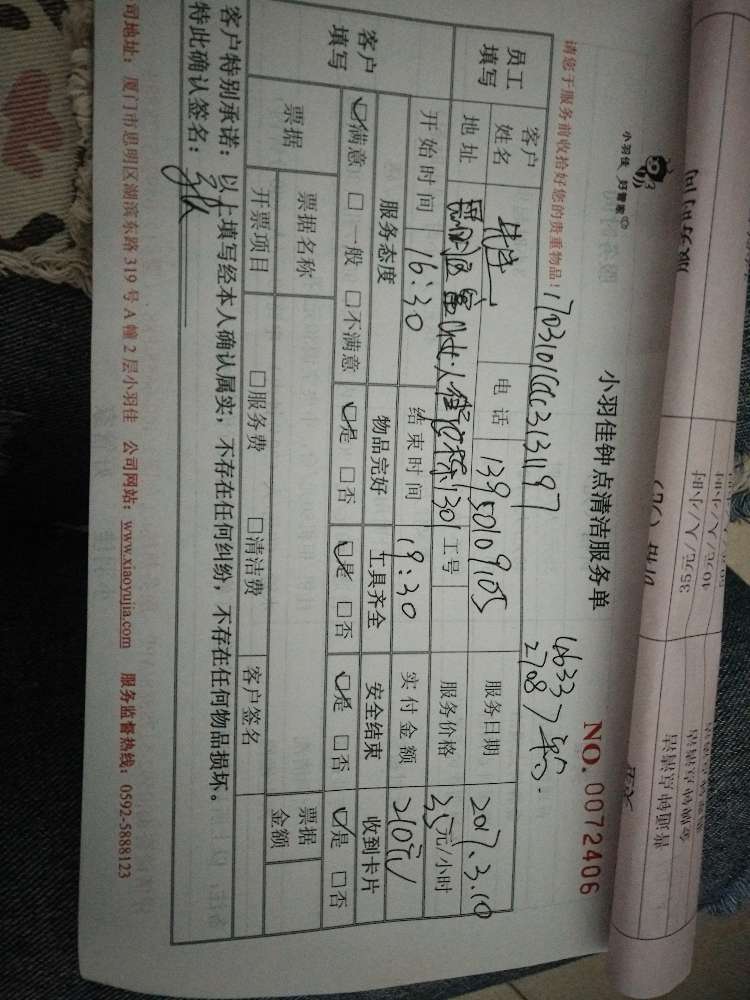 小羽佳 好管家
小羽佳钟点清洁服务单
NO. 0072406
请您于服务前收拾好您的贵重物品!
170310
2708
员工填写
客户姓名
电话 13950109105
服务日期 2017.3.10
地址
130
工号
服务价格 35元/小时
开始时间 16:30
结束时间 19:30
实付金额 210元
客户填写
服务态度 物品完好 工具齐全 安全结束 收到卡片
☑满意 □一般 □不满意 ☑是 □否 ☑是 □否 ☑是 □否 ☑是 □否
票据
票据名称
票据金额
开票项目 □服务费 □清洁费 客户签名
客户特别承诺:以上填写经本人确认属实,不存在任何纠纷,不存在任何物品损坏。
特此确认签名:
司地址: 厦门市思明区湖滨东路319号A幢2层小羽佳 公司网站: www.xiaoyujia.com 服务监督热线: 0592-5888123